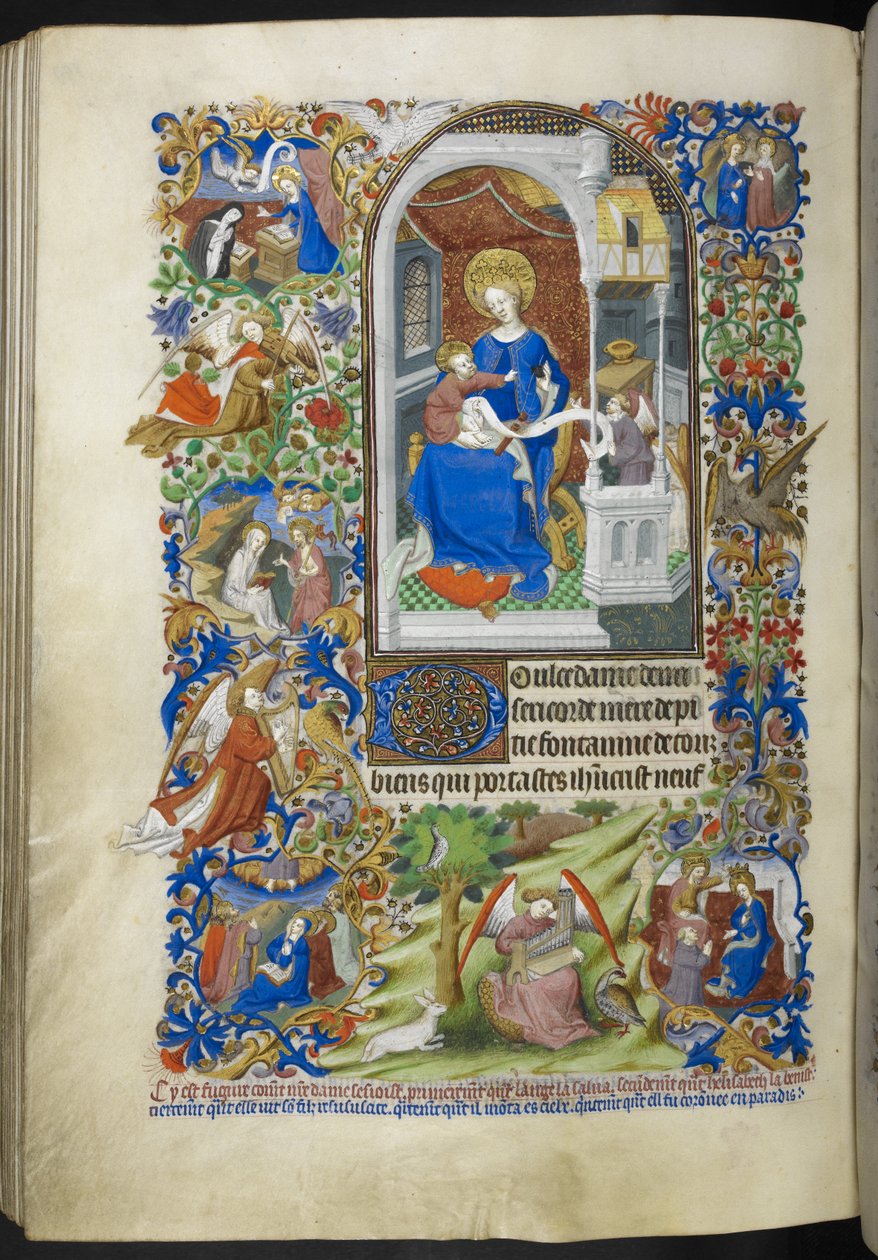 Doulce dame de mi
sericorde mere de pi
tie fontainne de touz
biens qui portastes ih̃ucrist neuf
Cy est figure com̃t nr̃e dame sesioist. prim̃erem̃t qñt lange la salua. secũdem̃t qñt helisabeth la benist.
tiercem̃t qñt elle vit sõ filz resuscite. q̃rtem̃t qñt il mõta es cielx. q̃ntem̃t qñt ell fu coronnee en paradis.